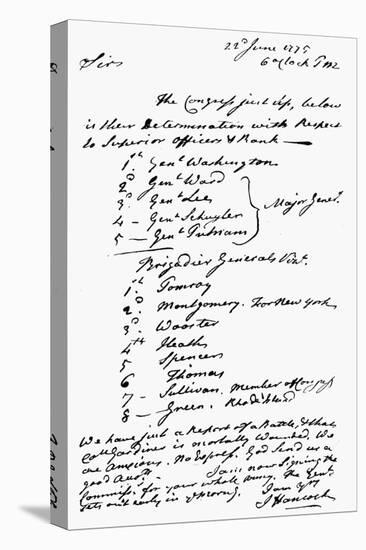 22d June 1775
Sirs 6 oClock PM
The Congress just up, below
is their Determination with Respect
to Superior Officers & Rank —
1st Genl Washington
2d Genl Ward
3d Genl Lee
4 — Genl Schuyler
5 — Genl Putnam
Major Genls.
Brigadier Generals Vizt.
1st Pomroy
2d Montgomery. For New York
3d Wooster
4th Heath
5 Spencer
6 Thomas
7 — Sullivan. Member of Congress
8 — Green. Rhode Island
We have just a Report of a Battle, & that
Coll Gardiner is mortally Wounded. We
are Anxious. No Express. God send us a
good Acctt. I am now Signing the
Commiss. for your whole Army. The Genl
sets out early in ye morng. I am Yrs
J Hancock